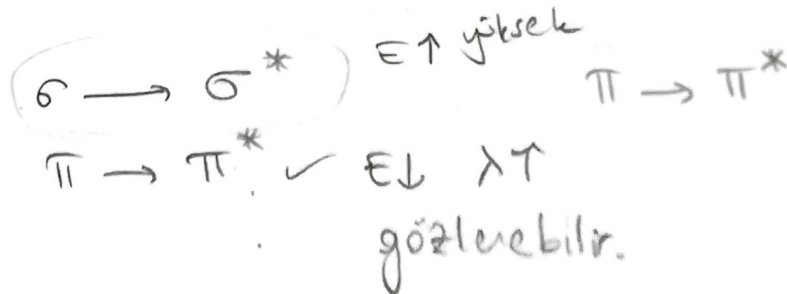 σ → σ* E↑ yüksek
π → π*
π → π* ✓ E↓ λ↑
gözlenebilir.